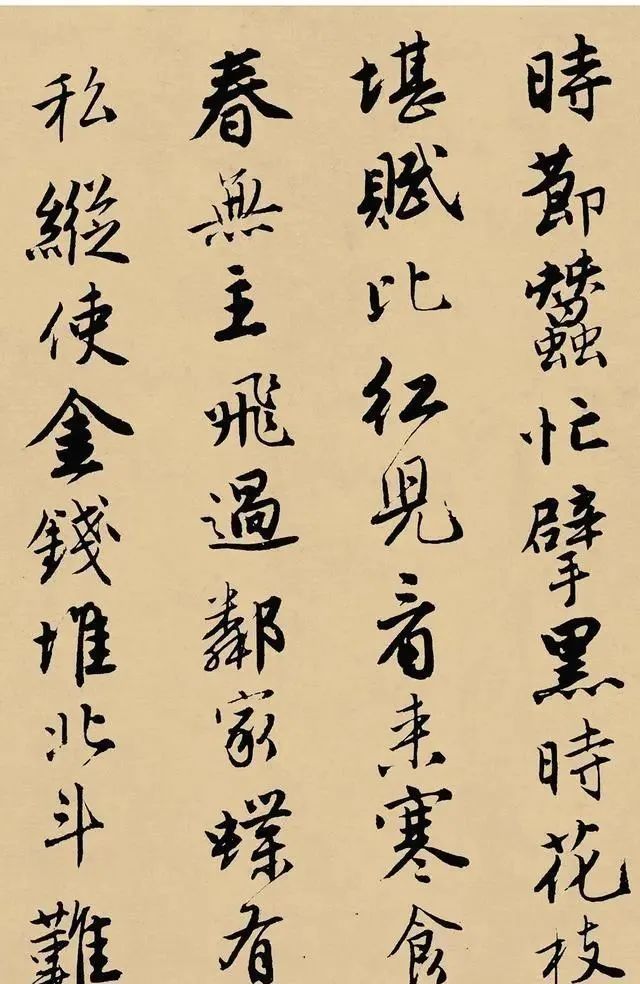 時節蠶忙擘黑時花枝
堪賦比紅兒看来寒食
春無主飛過鄰家蝶有
私縱使金錢堆北斗難